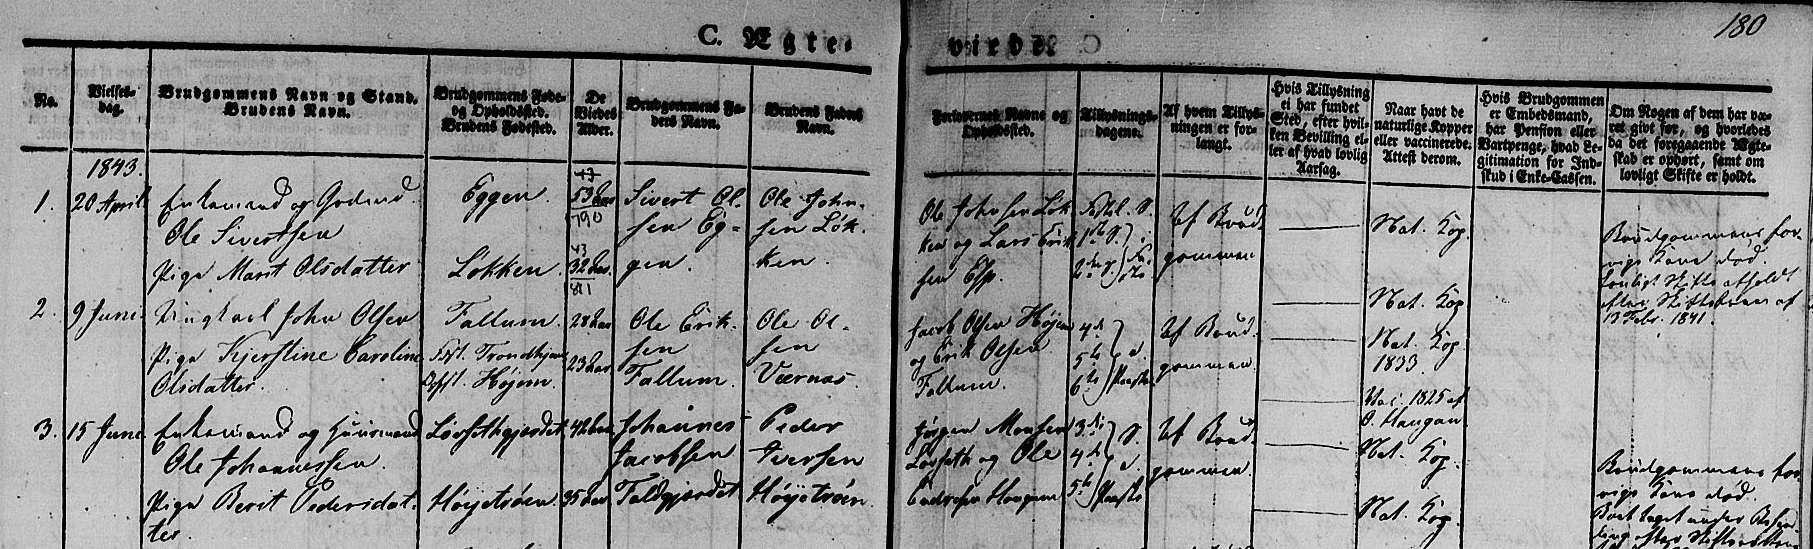 180
C. Ægte-
viede.
No.
Vielses-
dag.
Brudgommens Navn og Stand.
Brudens Navn.
Brudgommens Føde-
og Opholdssted.
Brudens Fødested.
De
Viedes
Alder.
Brudgommens Fa-
ders Navn.
Brudens Faders
Navn.
Forlovernes Navne og
Opholdssted.
Tillysnings-
dagene.
Af hvem Tillys-
ningen er for-
langt.
Hvis Tillysning
ei har fundet
Sted, efter hvil-
ken Bevilling el-
ler af hvad lovlig
Aarsag.
Naar havt de
naturlige Kopper
eller vaccinerede.
Attest derom.
Hvis Brudgommen
er Embedsmand,
har Pension eller
Vartpenge, hvad Le-
gitimation for Ind-
skud i Enke-Cassen.
Om Nogen af dem har væ-
ret givt før, og hvorledes
da det foregaaende Ægte-
skab er ophørt, samt om
lovligt Skifte er holdt.
1843.
1. 20 April
Enkemand og Gadmd.
Ole Sivertsen
Pige Marit Olsdatter
Eggen.
Løkken.
53 Aar
790
43
32 Aar
811
Sivert Ol-
sen Eg-
gen.
Ole John-
sen Løk-
ken.
Ole Johnsen Løk-
ken og Lars Erik-
sen Esp.
Af Brud-
gommen
Nat. Kop.
Nat. Kop
Brudgommens for-
rige Kone død.
Lovligt Skifte afholdt
efter Skiftebrev af
13 Febr. 1841.
2. 9 Juni.
Ungkarl John Olsen
Pige Kjerstine Caroline
Olsdatter.
Fallum.
Fød. Trondhjem
Opst. Højem.
28 Aar
23 Aar
Ole Erik-
sen
Fallum.
Ole Ol-
sen
Værnæs.
Jacob Olsen Højem
og Erik Olsen
Fallum.
4de
5te
6te
Af Brud-
gommen
Nat. Kop.
1833.
Vac. 1825 af
O. Haugan
3. 15 Juni.
Enkemand og Huusmand
Ole Johannessen.
Pige Berit Pedersdat-
ter.
Løvsethgjerdet
Høystrøen.
42 Aar
35 Aar
Johannes
Jacobsen
Foldgjerdet
Peder
Iversen
Høystrøen
Jørgen Monsen
Løvseth og Ole
3die
4de
5te
Af Brud-
gommen.
Nat. Kop.
Nat. Kop.
Brudgommens for-
rige Kone død.